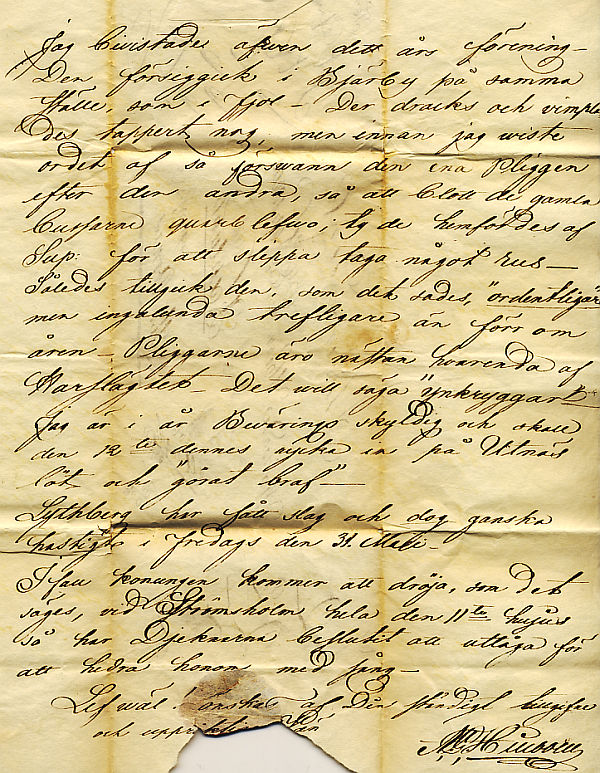 Jag bivistade äfven dett års förening –
Den försiggick i Bjärby på samma
ställe som i fjol – Der dracks och vimpla
des tappert nog, men innan jag wiste
ordet af så förswann den ena Pliggen
efter den andra, så att blott de gamla
Cussarne qvarblefwo; ty de hemfordes af
Sup: för att slippa taga något rus –
Således tillgick den, som det sades, "ordentligare
men ingalunda trefligare än förr om
åren – Pliggarne äro nästan hvarenda af
Harslägtet – Det will säga "ynkryggar" –
Jag är i år Bevärings skyldig och skall
den 12te dennes rycka in på Utnäs
löt och "görat braf" –
Lythberg har fått slag och dog ganska
hastigt i fredags den 31. Maii –
I fall konungen kommer att dröja, som det
säges, vid Strömsholm hela den 11te hujus
så har Djeknarna beslutit att uttåga för
att hedra honom med sång –
Lef wäl! önskas af Din ständigt tillgifne
och upprigtige Vän